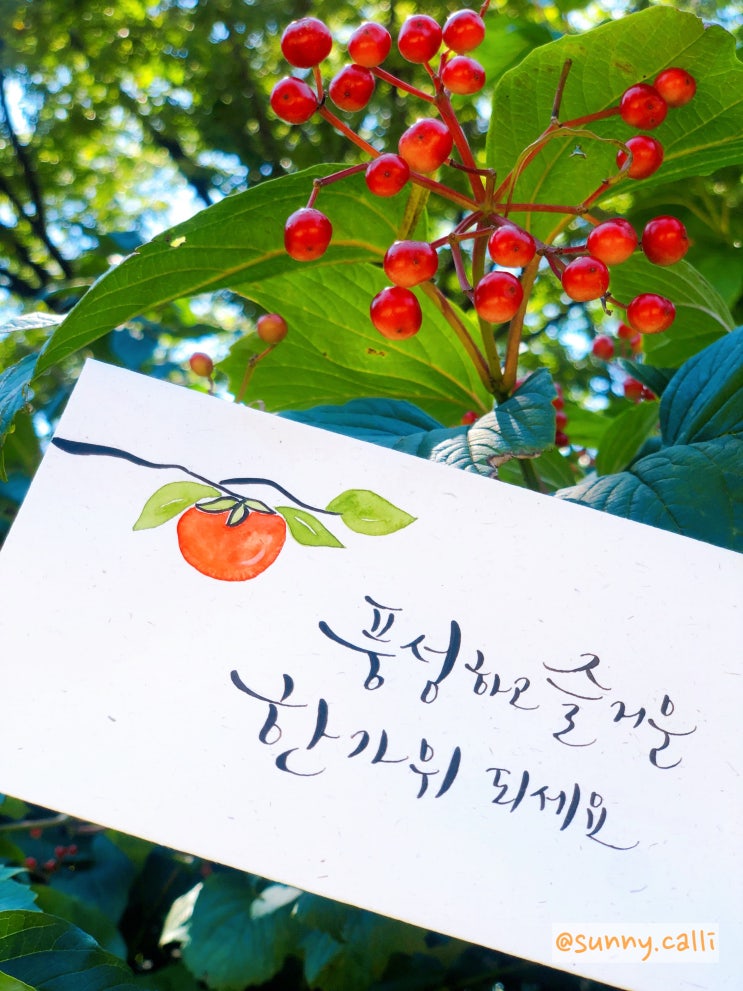 풍성하고 즐거울
한가위 되세요
@sunny.calli